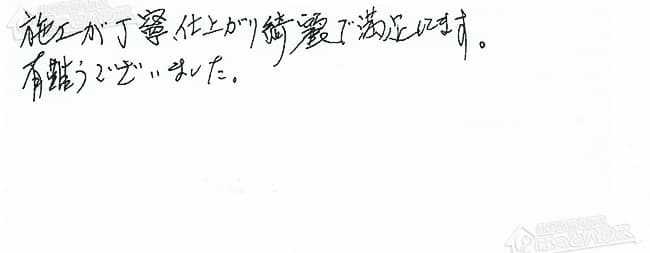 施工が丁寧、仕上がり綺麗で満足してます。
有難うございました。
ほっとハウス